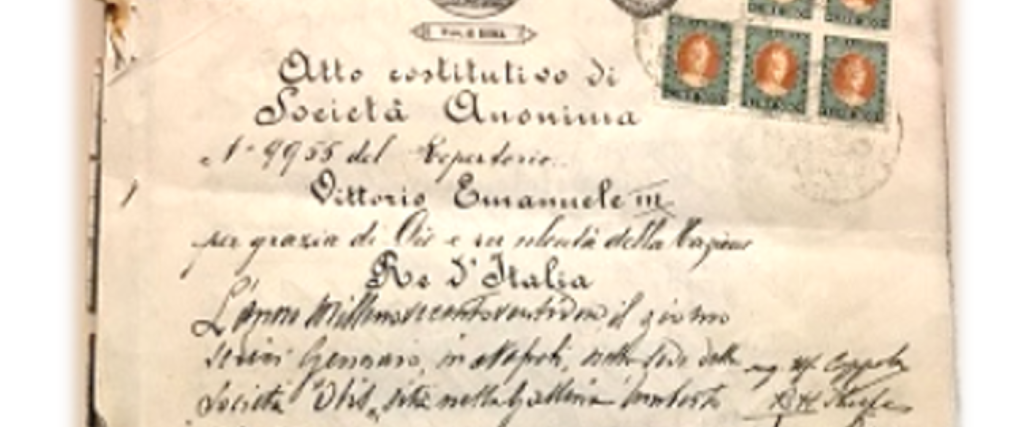 Atto costitutivo di
Società Anonima
N° 9955 del Repertorio
Vittorio Emanuele III
per grazia di Dio e per volontà della Nazione
Re d'Italia
L'anno Millenovecentoventidue il giorno
sedici Gennaio, in Napoli, nella sede della
Società sita nella Galleria Umberto